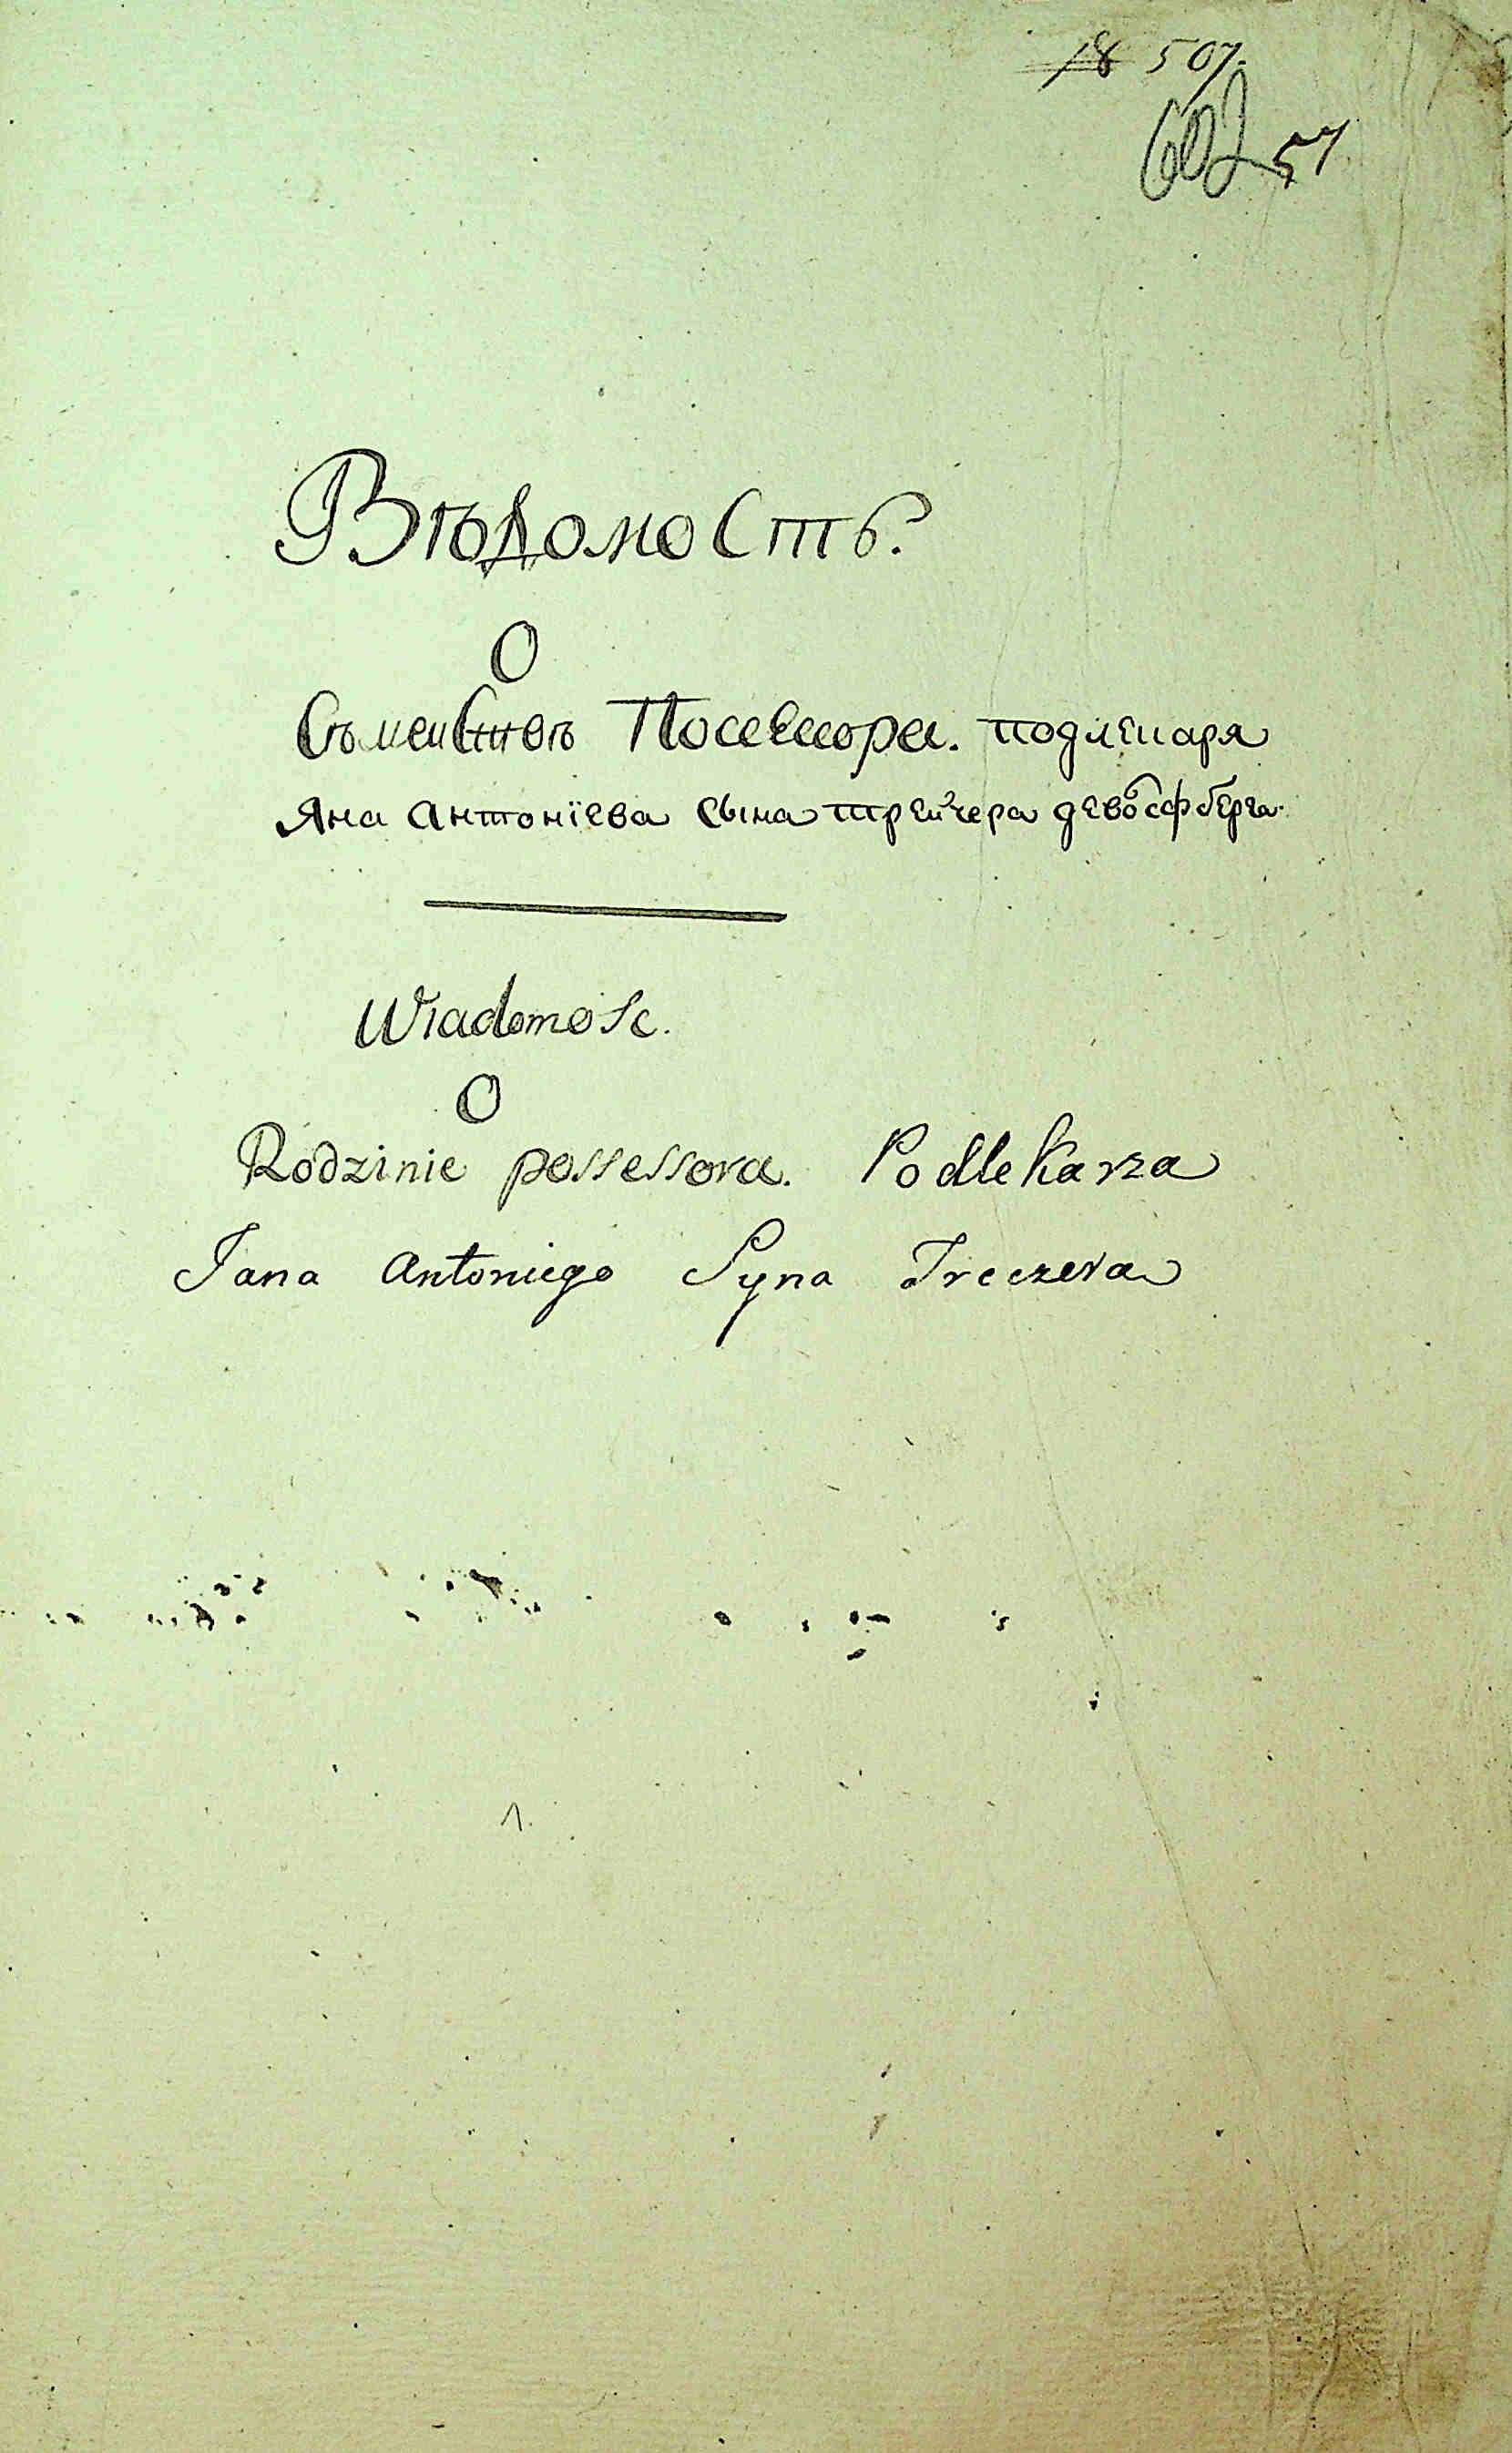 18 507.
602 57
Вѣдомость.
О
Съмеиствѣ Посессора. подлекаря
Яна Антонїева сына Трейчера
Wiadomosc.
O
Rodzinie possessora. Podlekarza
Jana Antoniego Syna Treczera